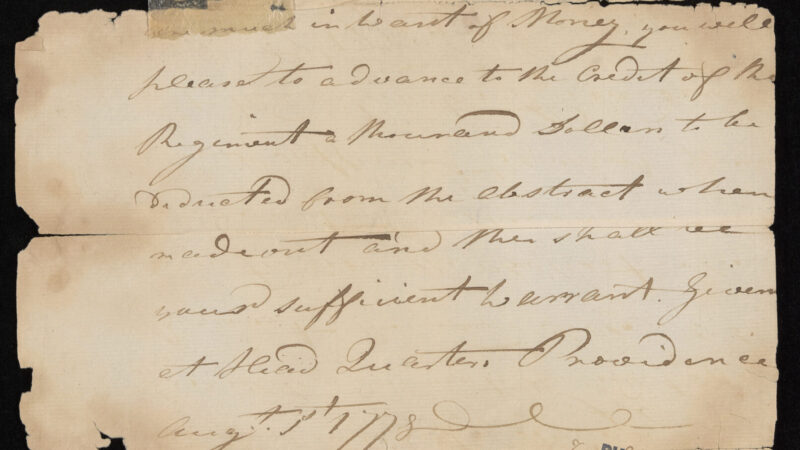 much in want of Money, you will
please to advance to the Credit of the
Regiment a thousand Dollars to be
deducted from the abstract when
made out and this shall be
your sufficient warrant. Given
at Head Quarters Providence
Augt. 1st 1778